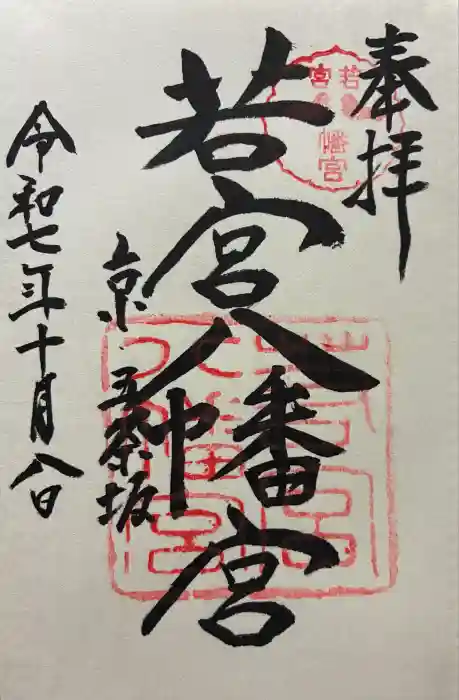 奉拝
若宮八幡宮
京・五条坂
令和七年十月八日
若宮八幡宮